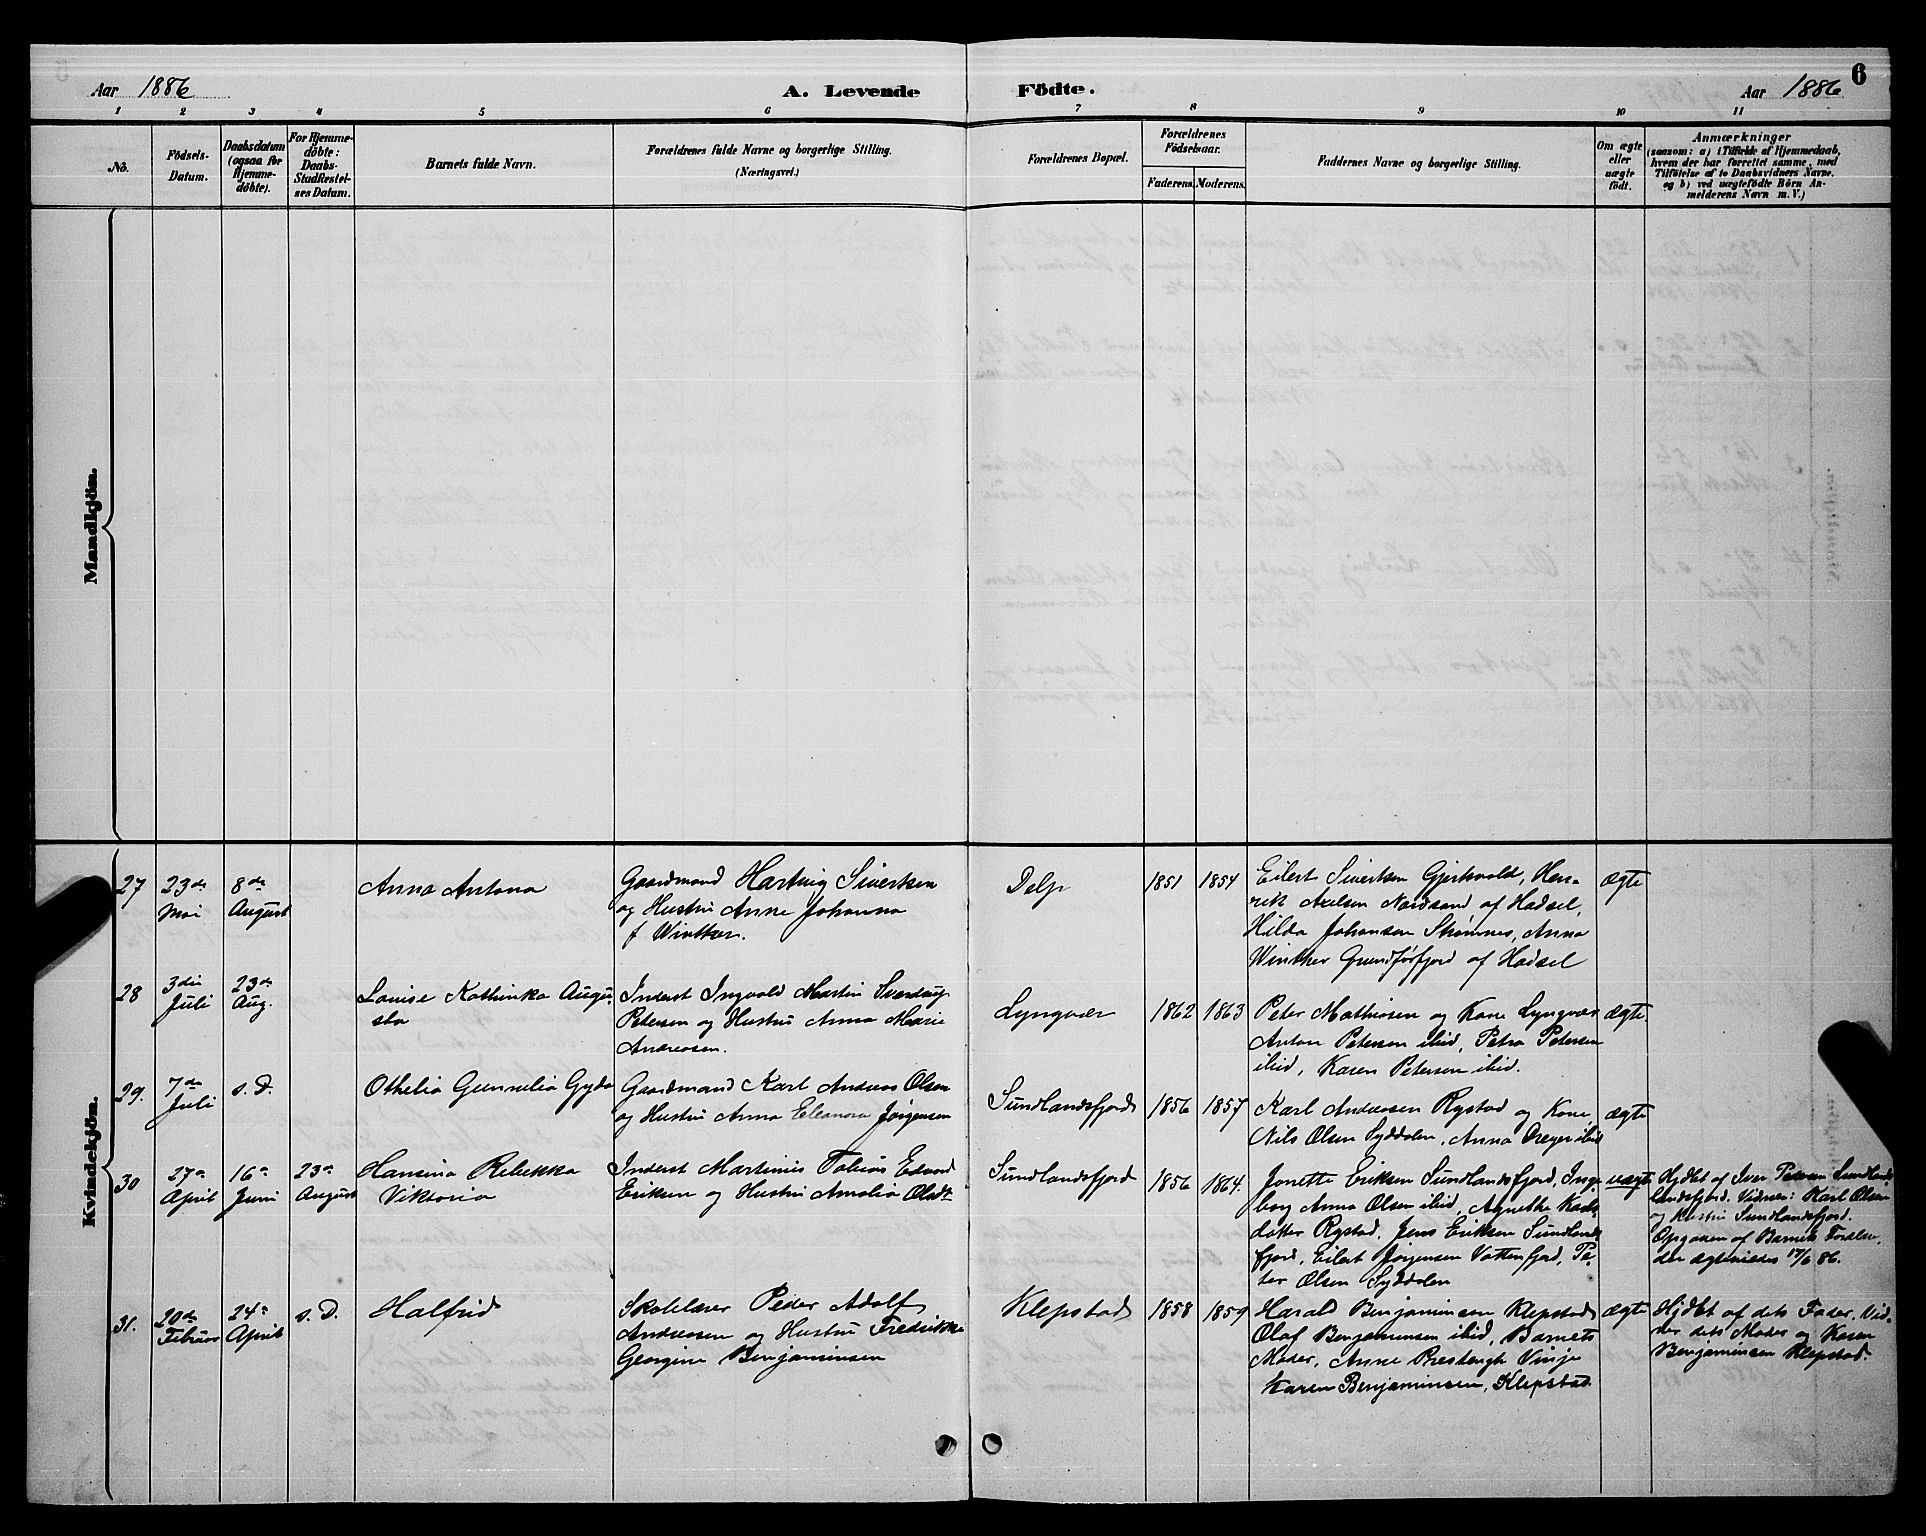 Aar 1886
A. Levende Födte.
Aar 1886
6
1 2 3 4 5 6 7 8 9 10 11
No.
Födsels-
Datum.
Daabsdatum
(ogsaa for
Hjemme-
döbte).
For Hjemme-
döbte:
Daabs-
Stadfæstel-
ses Datum.
Barnets fulde Navn.
Forældrenes fulde Navne og borgerlige Stilling.
(Næringsvei.)
Forældrenes Bopæl.
Forældrenes
Födselsaar.
Faderens.
Moderens.
Faddernes Navne og borgerlige Stilling.
Om ægte
eller
uægte
födt.
Anmærkninger
(saasom: a) i Tilfælde af Hjemmedaab,
hvem der har forrettet samme, med
Tilföielse af to Daabsvidners Navne,
og b) ved uægtefödte Börn An-
melderens Navn m. V.)
Mandkjön.
Kvindekjön.
27
23de
Mai
8de
August
Anna Antona
Gaardmand Hartvig Sivertsen
og Hustru Anne Johanna
f Winther.
Delp
1851
1854
Eilert Sivertsen Gjerhvold, Hen-
rik Axelsen Nordsand af Hadsel,
Hilda Johansen Strømnes, Anna
Winther Grundførfjord af Hadsel
ægte
28
3die
Juli
23de
Aug.
Louise Kathinka Augu-
sta
Inderst Ingvald Martin Sverdrup
Petersen og Hustru Anna Marie
Andreasen.
Lyngvær
1862
1863
Peter Mathiasen og Kone Lyngvær
Anton Petersen ibid, Petra Petersen
ibid, Karen Petersen ibid.
ægte.
29.
7de
Juli
s. D.
Othelia Gunnelia Gyda
Gaardmand Karl Andreas Olsen
og Hustru Anna Eleanora Jørgensen
Sundlandsfjord
1856
1857
Karl Andreasen Rystad og Kone,
Nils Olsen Syddalen, Anna Dreyer ibid
ægte
30
27de
April
16de
Juni
23de
August
Hansina Rebekka
Viktoria
Inderst Martinus Tobias Edvard
Eriksen og Hustru Amalia Olsdt
Sundlandsfjord
1856
1864.
Jonette Eriksen Sundlandsfjord, Inge
borg Anna Olsen ibid, Agnethe Karls
datter Rystad, Jens Eriksen Sundlands
fjord, Eilert Jørgensen Vattenfjord, Pe-
ter Olsen Syddalen
uægte
Hjdbt af Iver Petersen Sundland
landsfjord. Vidner: Karl Olsen
og Hustru Sundlandsfjord.
Opgaven af Barnets Forældre,
der ægteviedes 17/6 86.
31.
20de
Februar
24de
April
s. D.
Halfrid
Skolelærer Peder Adolf
Andreasen og Hustru Fredrikke
Georgine Benjaminsen
Klepstad
1858
1859
Harald Benjaminsen Klepstad
Olaf Benjaminsen ibid, Barnets
Moder, Anne Prestengh Vinje
Karen Benjaminsen, Klepstad
ægte
Hjdbt af dets Fader. Vid-
ner dets Moder og Karen
Benjaminsen Klepstad.